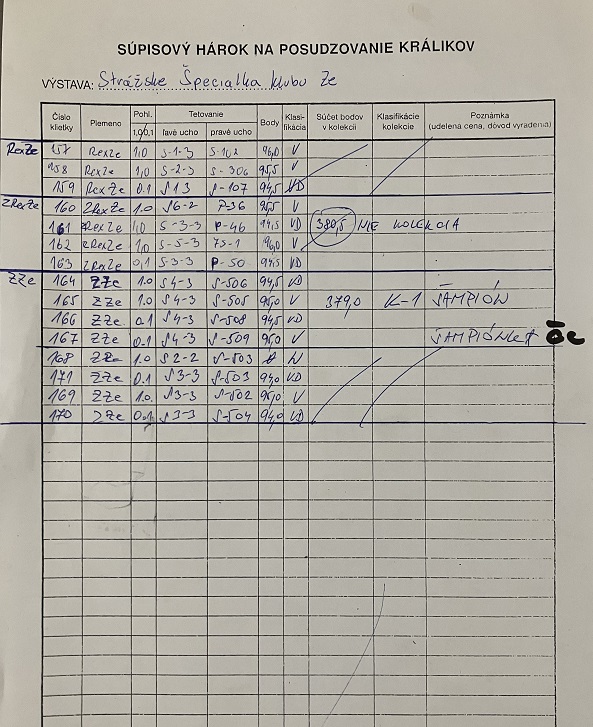 SÚPISOVÝ HÁROK NA POSUDZOVANIE KRÁLIKOV
VÝSTAVA: Strážske Špecialka klubu Ze
Číslo klietky Plemeno Pohl. 1,0/0,1 Tetovanie ľavé ucho pravé ucho Body Klasifikácia Súčet bodov v kolekcii Klasifikácie kolekcie Poznámka (udelená cena, dôvod vyradenia)
RexZe 157 RexZe 1,0 S-1-3 S-102 96,0 V
158 RexZe 1,0 S-2-3 S-306 95,5 V
159 RexZe 0.1 S13 S-107 94,5 VD
ZRexZe 160 ZRexZe 1.0 S6-2 P-36 95,5 V
161 ZRexZe 1,0 S-3-3 P-46 94,5 VD 380,5 NIE KOLEKCIA
162 ZRexZe 1,0 S-5-3 75-1 96,0 V
163 ZRexZe 0,1 S-3-3 P-50 94,5 VD
ZZe 164 ZZe 1.0 S4-3 S-506 94,5 VD
165 ZZe 1.0 S4-3 S-505 95,0 V 379,0 K-1 ŠAMPIÓN
166 ZZe 0.1 S4-3 S-508 94,5 VD
167 ZZe 0.1 S4-3 S-509 95,0 V ŠAMPIÓNKA ČC
168 ZZe 1.0 S2-2 S-503 N
171 ZZe 0.1 S3-3 S-503 94,0 VD
169 ZZe 1.0 S3-3 S-502 95,0 V
170 ZZe 0.1 S3-3 S-504 94,0 VD